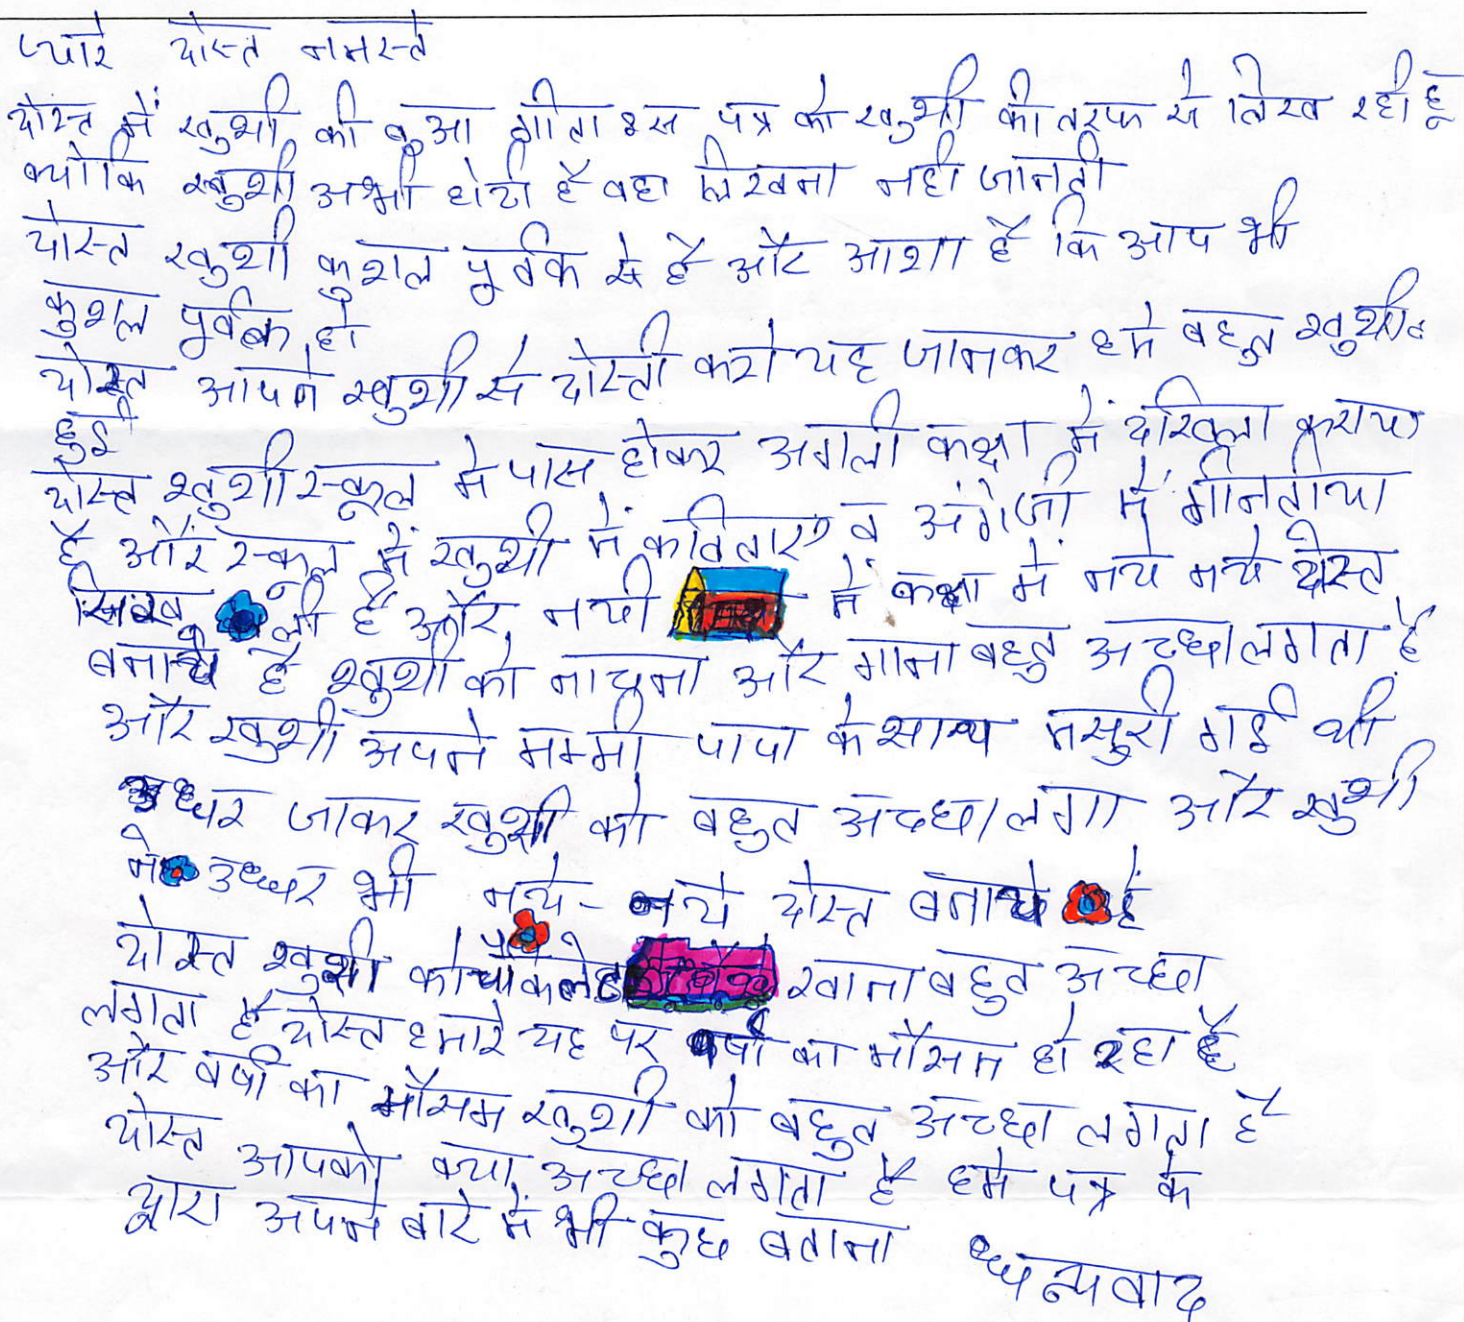 प्यारे दोस्त नमस्ते
दोस्त में खुशी की बुआ गीता इस पत्र को खुशी की तरफ से लिख रही हू
क्योकि खुशी अभी छोटी है वहा लिखना नही जानती
दोस्त खुशी कुशल पूर्वक से है और आशा है कि आप भी
कुशल पूर्वक हो
दोस्त आपने खुशी से दोस्ती करी यह जानकर हमे बहुत खुशी
हुई
दोस्त खुशी स्कूल मे पास होकर अगली कक्षा में दाखिला कराया
है और स्कूल में खुशी ने कविताए व अंग्रेजी में गीनतीया
सिख ली है और नयी ने कक्षा मे नये नये दोस्त
बनाये है खुशी को नाचना और गाना बहुत अच्छा लगता है
और खुशी अपने मम्मी पापा के साथ मसुरी गई थी
उधर जाकर खुशी को बहुत अच्छा लगा और खुशी
ने उधर भी नये - नये दोस्त बनाये है
दोस्त खुशी को चौकलेट खाना बहुत अच्छा
लगता है दोस्त हमारे यह पर वर्षा का मौसम हो रहा है
और वर्षा का मौसम खुशी को बहुत अच्छा लगता है
दोस्त आपको क्या अच्छा लगता है हमे पत्र के
द्वारा अपने बारे में भी कुछ बताना धन्यवाद